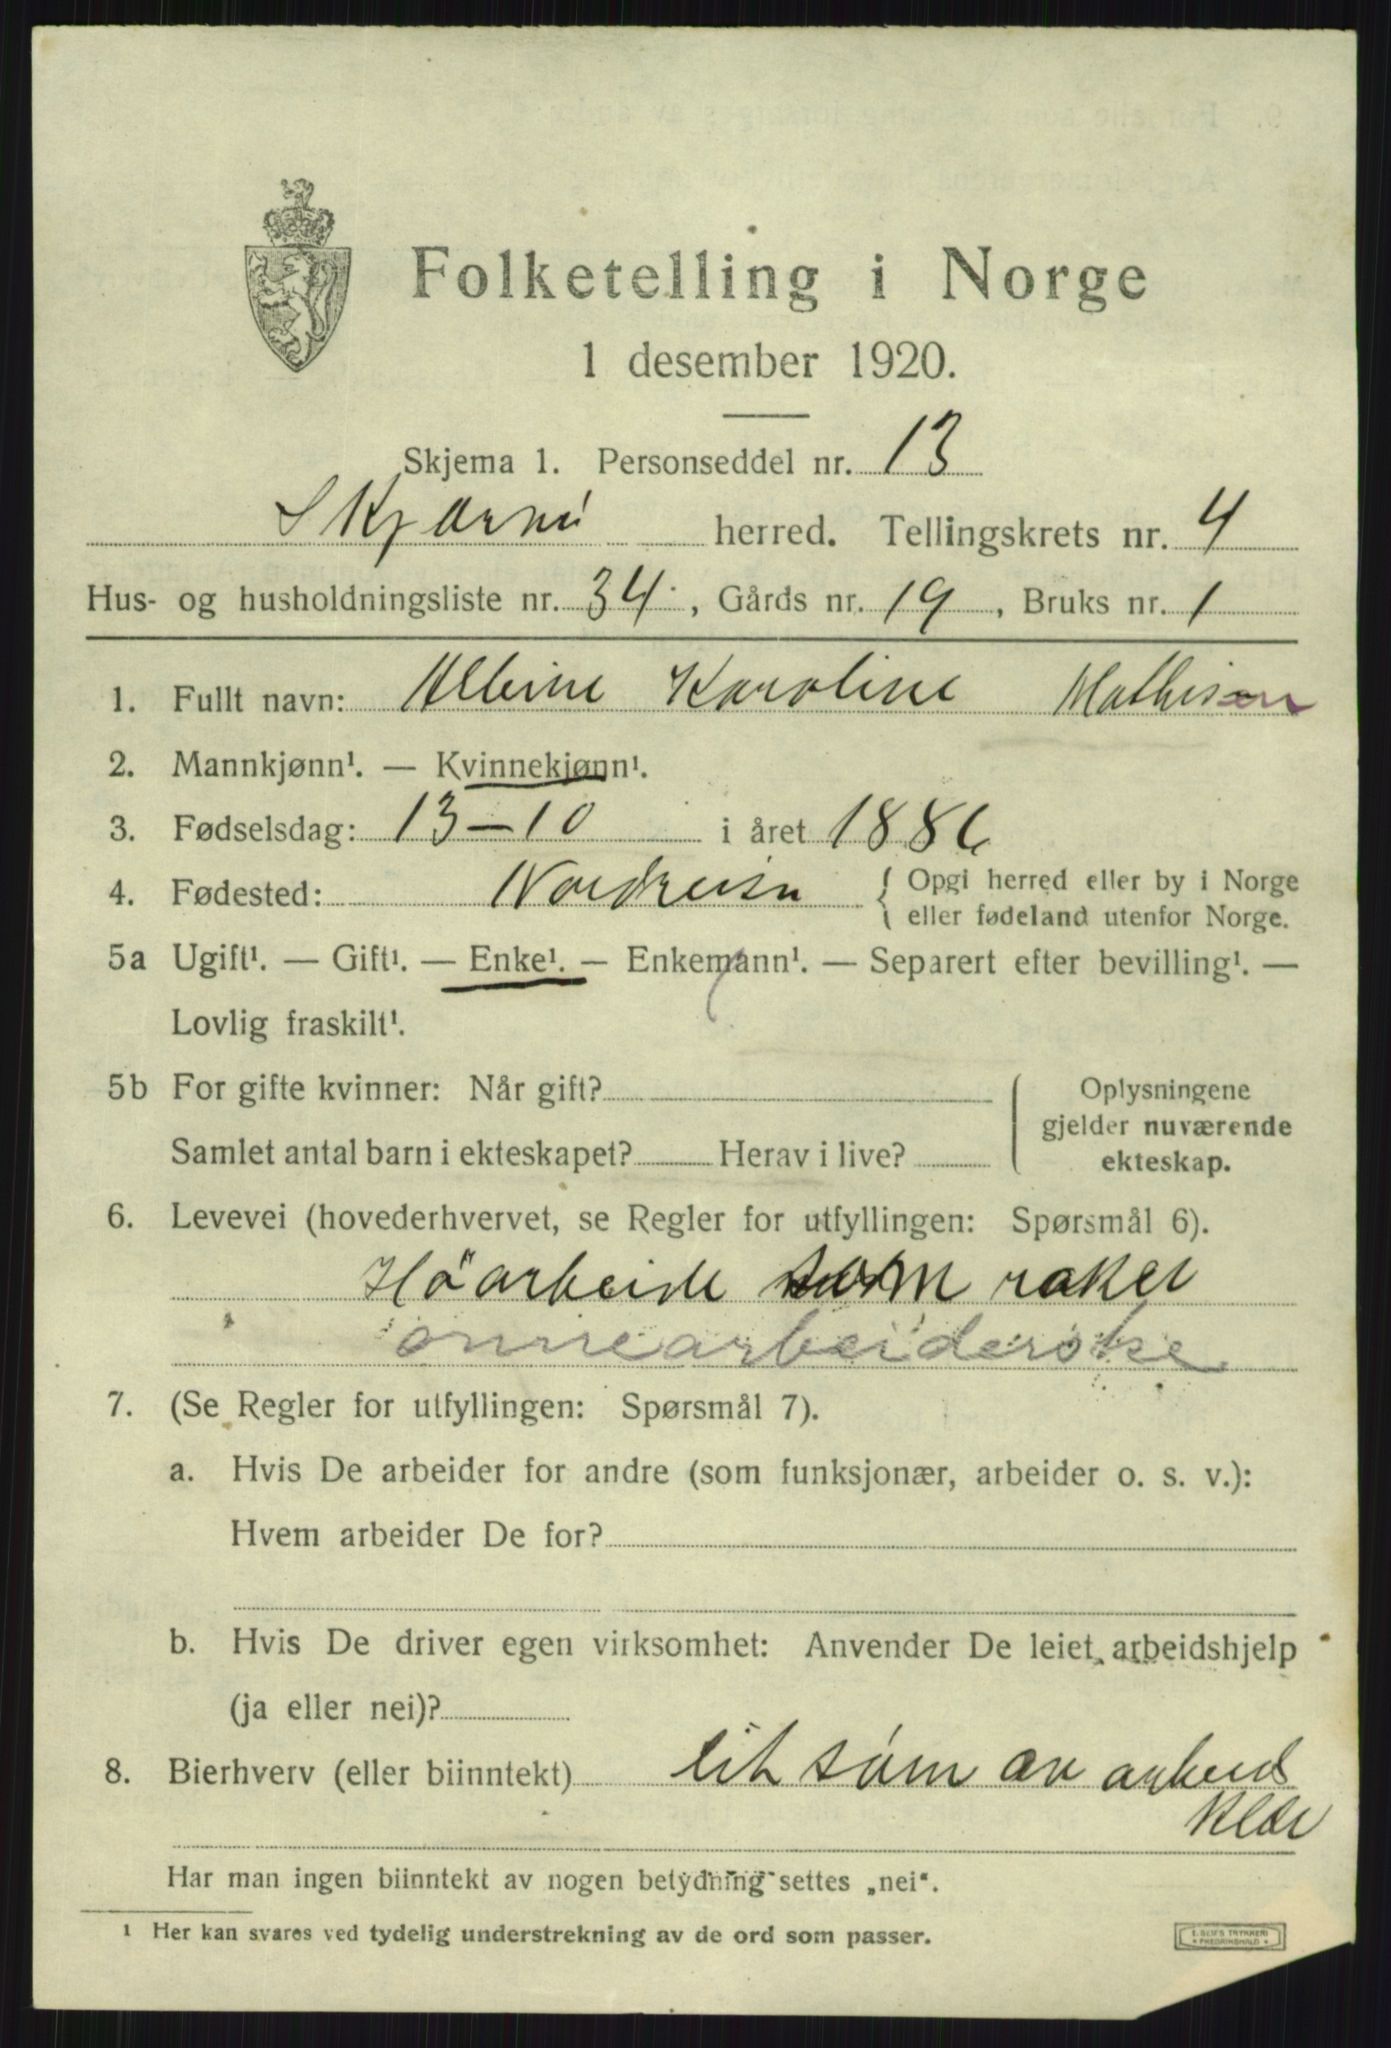 Folketelling i Norge
1 desember 1920.
Skjema 1. Personseddel nr. 13
Skjervø herred. Tellingskrets nr. 4
Hus- og husholdningsliste nr. 34, Gårds nr. 19, Bruks nr. 1
1. Fullt navn: Albine Karoline Mathisen
2. Mannkjønn¹. — Kvinnekjønn¹.
3. Fødselsdag: 13-10 i året 1886
4. Fødested: Nordreisa { Opgi herred eller by i Norge
eller fødeland utenfor Norge.
5a Ugift¹. — Gift¹. — Enke¹. — Enkemann¹. — Separert efter bevilling¹. —
Lovlig fraskilt¹.
5b For gifte kvinner: Når gift?
Samlet antal barn i ekteskapet? Herav i live?
Oplysningene
gjelder nuværende
ekteskap.
6. Levevei (hovederhvervet, se Regler for utfyllingen: Spørsmål 6).
Høarbeide som raker
onnearbeiderske
7. (Se Regler for utfyllingen: Spørsmål 7).
a. Hvis De arbeider for andre (som funksjonær, arbeider o. s. v.):
Hvem arbeider De for?
b. Hvis De driver egen virksomhet: Anvender De leiet arbeidshjelp
(ja eller nei)?
8. Bierhverv (eller biinntekt) lit søm av arbeids
klær
Har man ingen biinntekt av nogen betydning settes „nei“.
¹ Her kan svares ved tydelig understrekning av de ord som passer.
E. SEMS TRYKKERI
FREDRIKSHALD